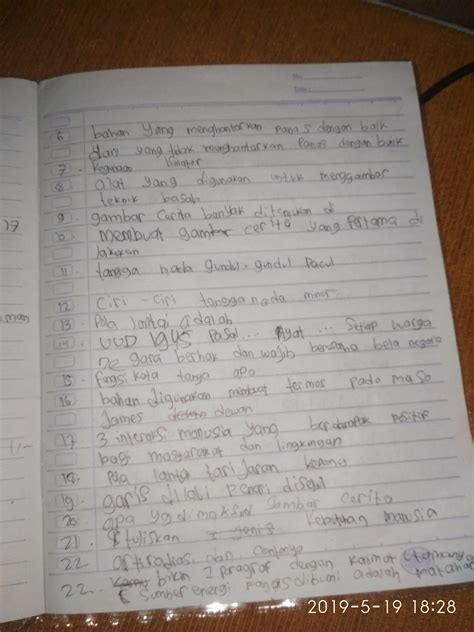 No.
Date:
6 bahan yang menghantarkan panas dengan baik
dan yang tidak menghantarkan panas dengan baik
7. Kegunaan isolator
8 alat yang digunakan untuk menggambar
teknik basah
9. gambar cerita banyak ditemukan di
10 membuat gambar cerita yang pertama di
lakukan
11. tangga nada gundul-gundul pacul
12 Ciri-ciri tangga nada minor
13. Pola lantai adalah
14. UUD 1945 Pasal... Ayat... Setiap warga
negara berhak dan wajib bersama bela negara
15. fungsi kata tanya apa
16 bahan digunakan membuat termos pada masa
James dewan
17 3 interaksi manusia yang berdampak positif
bagi masyarakat dan lingkungan
18. Pola lantai tari jaran kepang
19. garis dilalui penari disebut
20 apa yg dimaksud gambar cerita
21. tuliskan 3 jenis kebutuhan manusia
22 arti radiasi dan contonya
22. bikin 1 paragraf dengan kalimat utamanya
Sumber energi panas dibumi adalah matahari
17
11-
2019-5-19 18:28